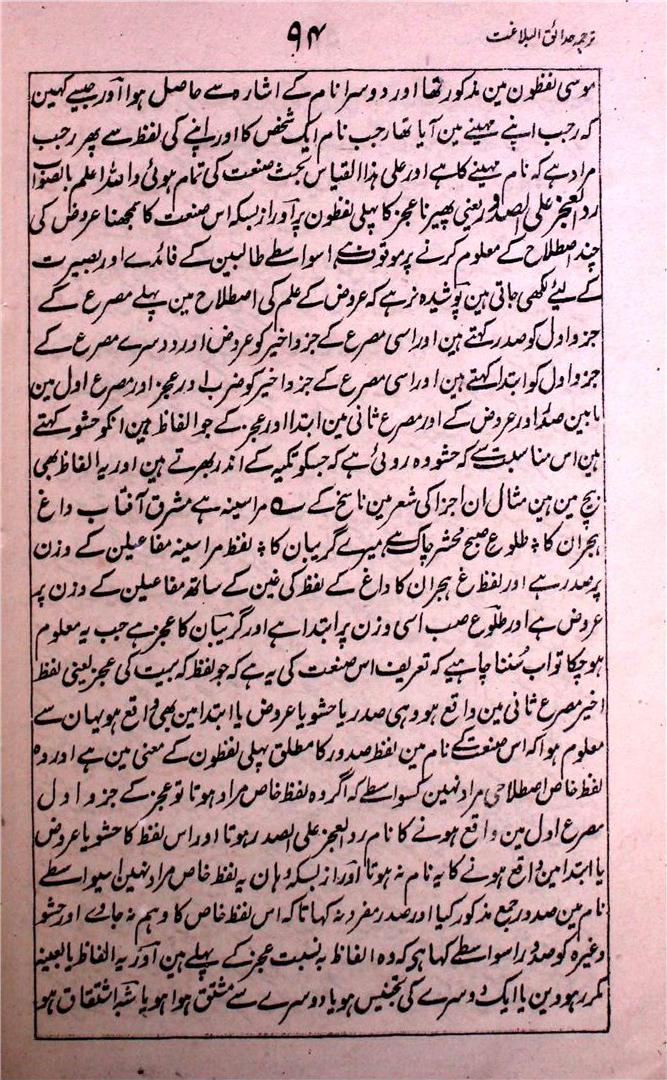 ترجمہ حدائق البلاغت
۹۴
موسی لفظون مین مذکور تھا اور دوسرا نام کے اشارہ سے حاصل ہوا اور جیسے کہین
کہ رجب اپنے مہینے مین آیا تھا رجب نام ایک شخص کا اور اپنے کی لفظ سے پھر رجب
مراد ہے کہ نام مہینے کا ہے اور علی ہذا القیاس بحث صنعت کی تمام ہوئی واللہ اعلم بالصواب
رد العجز علی الصدور یعنی پھیرنا عجز کا پہلی لفظون پر اور ازبسکہ اس صنعت کا سمجھنا عروض کی
چند اصطلاح کے معلوم کرنے پر موقوف ہے اسواسطے طالبین کے فائدے اور بصیرت
کے لیئے لکھی جاتی ہین پوشیدہ نرہے کہ عروض کے علم کی اصطلاح مین پہلے مصرع کے
جزو اول کو صدر کہتے ہین اور اسی مصرع کے جزو اخیر کو عروض اور دوسرے مصرع کے
جزو اول کو ابتدا کہتے ہین اور اسی مصرع کے جزو اخیر کو ضرب اور عجز اور مصرع اول مین
مابین صدر اور عروض کے اور مصرع ثانی مین ابتدا اور عجز کے جو الفاظ ہین انکو حشو کہتے
ہین اس مناسبت سے کہ حشو وہ روئی ہے کہ جسکو تکیہ کے اندر بھرتے ہین اور یہ الفاظ بھی
بیچ مین ہین مثال ان اجزا کی شعر مین ناسخ کے ے مرا سینہ ہے مشرق آفتاب داغ
ہجران کا ؛ طلوع صبح محشر چاک ہے میرے گریبان کا ؛ لفظ مرا سینہ مفاعیلن کے وزن
پر صدر ہے اور لفظ غ ہجران کا داغ کے لفظ کی غین کے ساتھ مفاعیلن کے وزن پر
عروض ہے اور طلوع صب اسی وزن پر ابتدا ہے اور گریبان کا عجز ہے جب یہ معلوم
ہو چکا تو اب سننا چاہیے کہ تعریف اس صنعت کی یہ ہے کہ جو لفظ کہ بیت کی عجز یعنی لفظ
اخیر مصرع ثانی مین واقع ہو وہی صدر یا حشو یا عروض یا ابتدا مین بھی واقع ہو یہان سے
معلوم ہوا کہ اس صنعت کے نام مین لفظ صدور کا مطلق پہلی لفظون کے معنی مین ہے اور وہ
لفظ خاص اصطلاحی مراد نہین کسواسطے کہ اگر وہ لفظ خاص مراد ہوتا تو عجز کے جزو اول
مصرع اول مین واقع ہونے کا نام رد العجز علی الصدر ہوتا اور اس لفظ کا حشو یا عروض
یا ابتدا مین واقع ہونے کا یہ نام نہ ہوتا اور ازبسکہ وہان یہ لفظ خاص مراد نہین اسیواسطے
نام مین صدور جمع مذکور کیا اور صدر مفرد نہ کہا تاکہ اس لفظ خاص کا وہم نہ جاوے اور حشو
وغیرہ کو صدور اسواسطے کہا ہی کہ وہ الفاظ بہ نسبت عجز کے پہلے ہین اور یہ الفاظ یا بعینہ
مکرر ہووین یا ایک دوسرے کی تجنیس ہو یا دوسرے سے مشتق ہوا ہو یا شبہ اشتقاق ہو